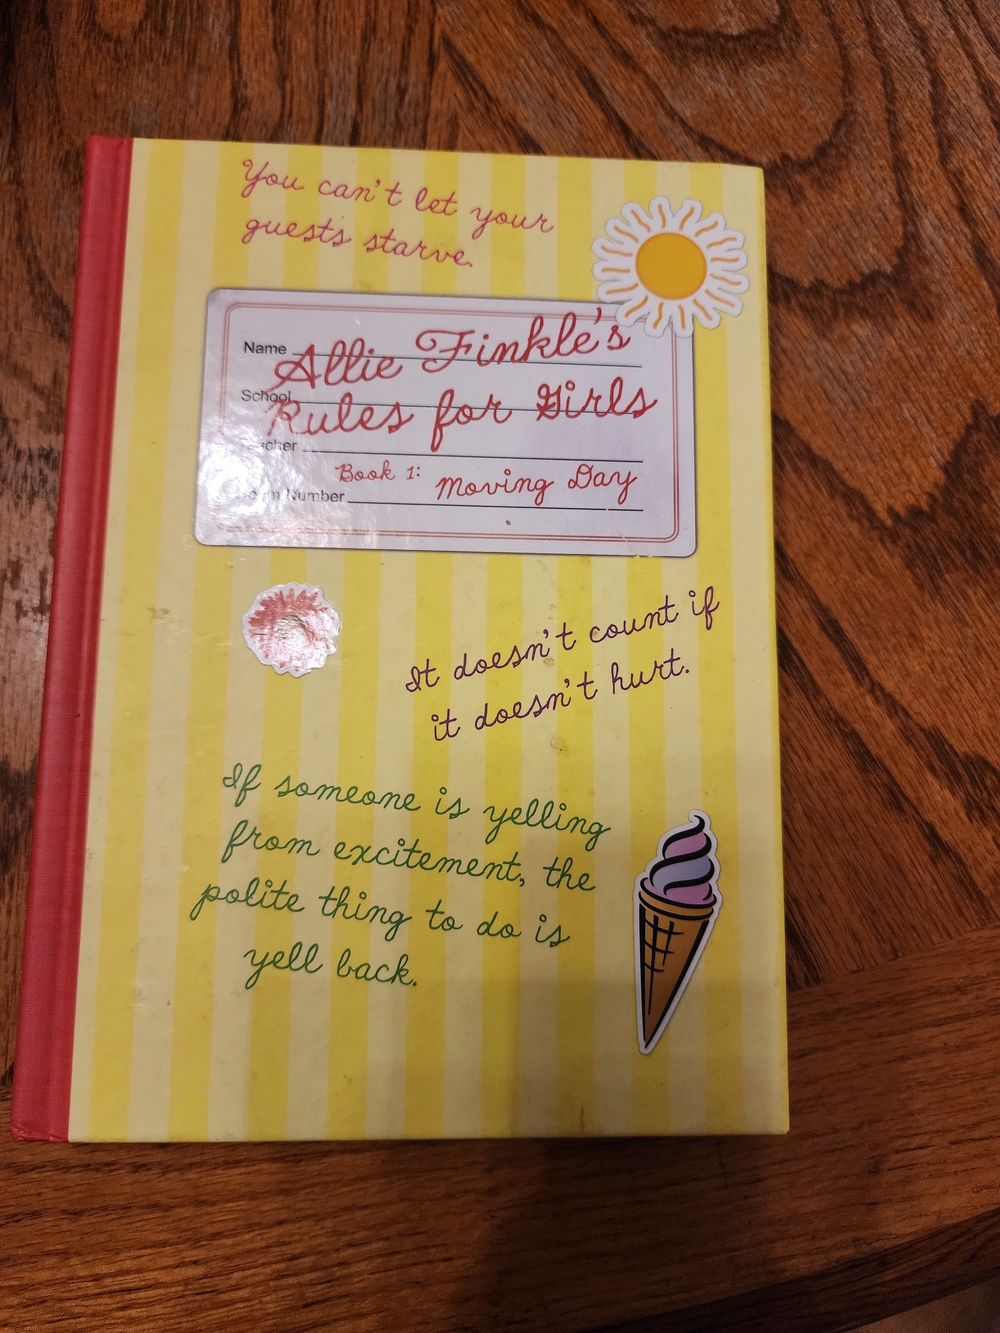 You can't let your
guests starve.
Name Allie Finkle's
School Rules for Girls
Book 1: Moving Day
Number
It doesn't count if
it doesn't hurt.
If someone is yelling
from excitement, the
polite thing to do is
yell back.